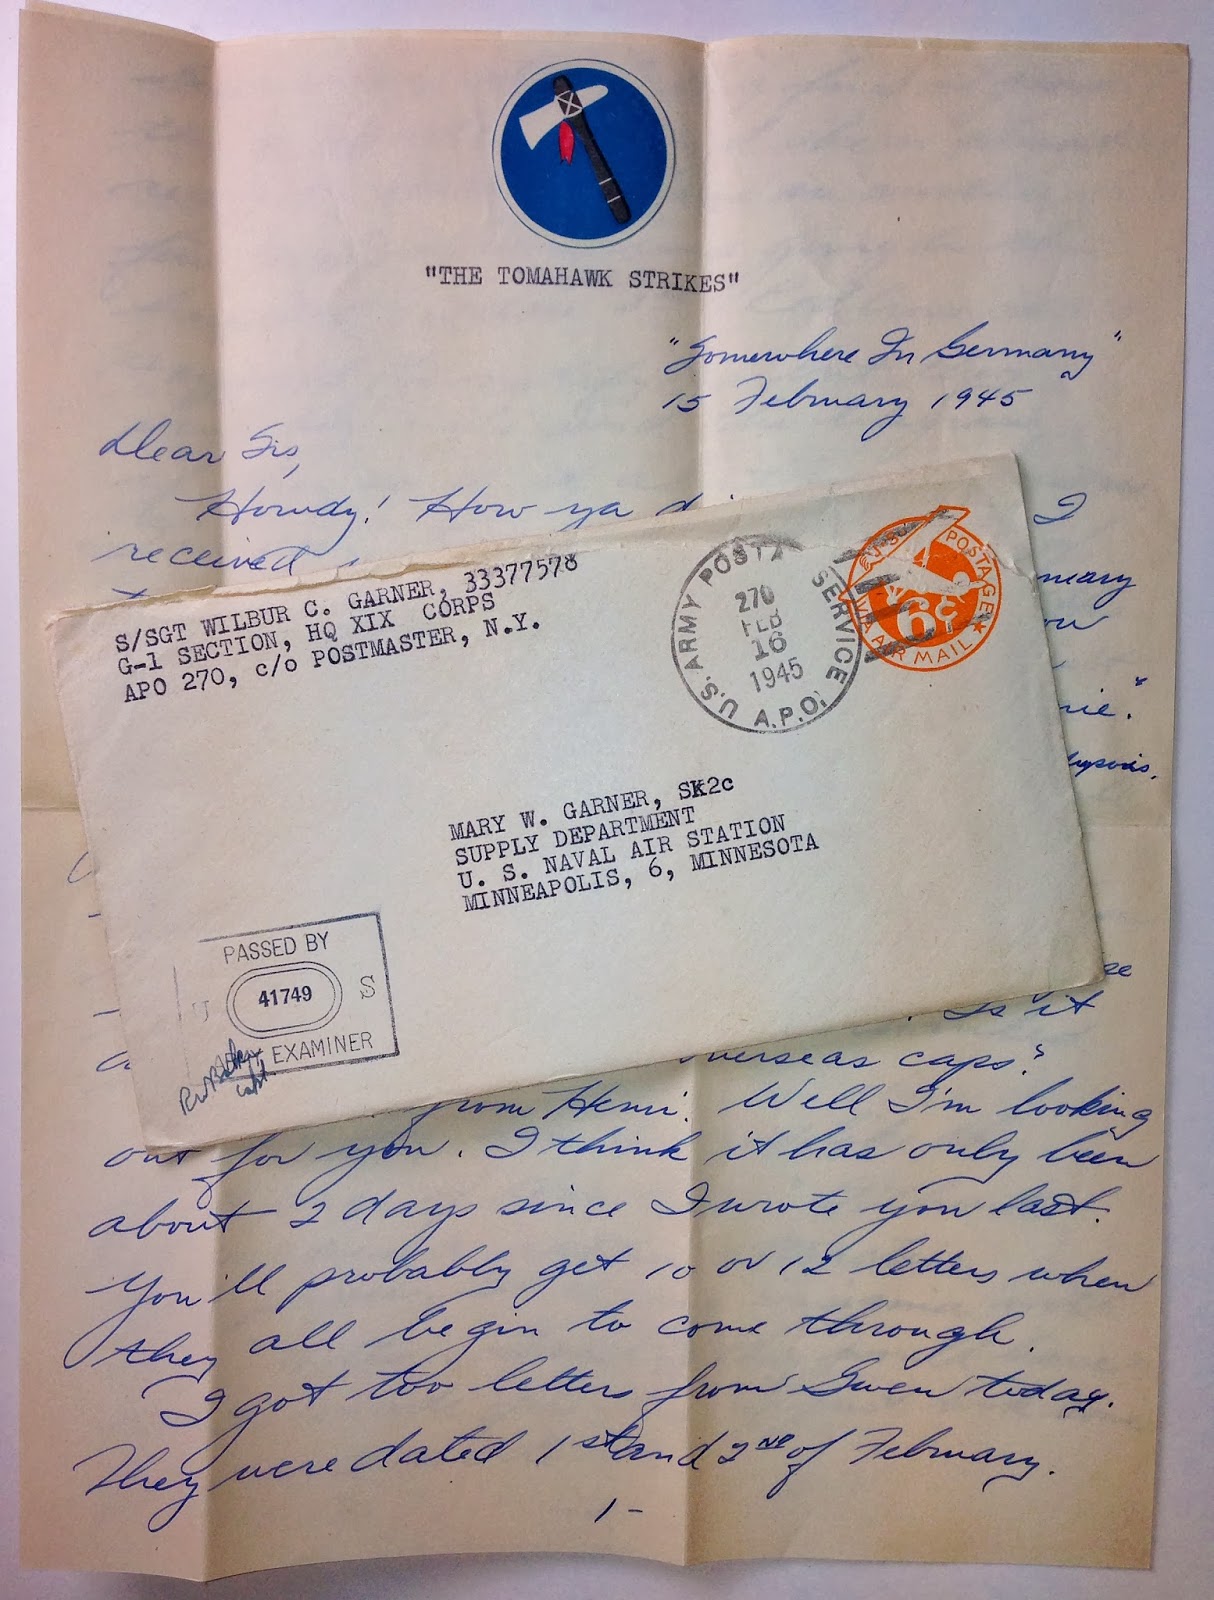 "THE TOMAHAWK STRIKES"
"Somewhere In Germany"
15 February 1945
Dear Sis,
Howdy! How ya I
received
S/SGT WILBUR C. GARNER, 33377578
G-1 SECTION, HQ XIX CORPS
APO 270, c/o POSTMASTER, N.Y.
U.S. ARMY POSTAL SERVICE
A.P.O.
270
FEB
16
1945
U.S. POSTAGE
6¢
VIA AIR MAIL
MARY W. GARNER, SK2c
SUPPLY DEPARTMENT
U. S. NAVAL AIR STATION
MINNEAPOLIS, 6, MINNESOTA
PASSED BY
U 41749 S
EXAMINER
Is it
overseas caps?
from Henri. Well I'm looking
out for you. I think it has only been
about 2 days since I wrote you last.
You'll probably get 10 or 12 letters when
they all begin to come through.
I got too letters from Gwen today.
They were dated 1st and 2nd of February.
1-